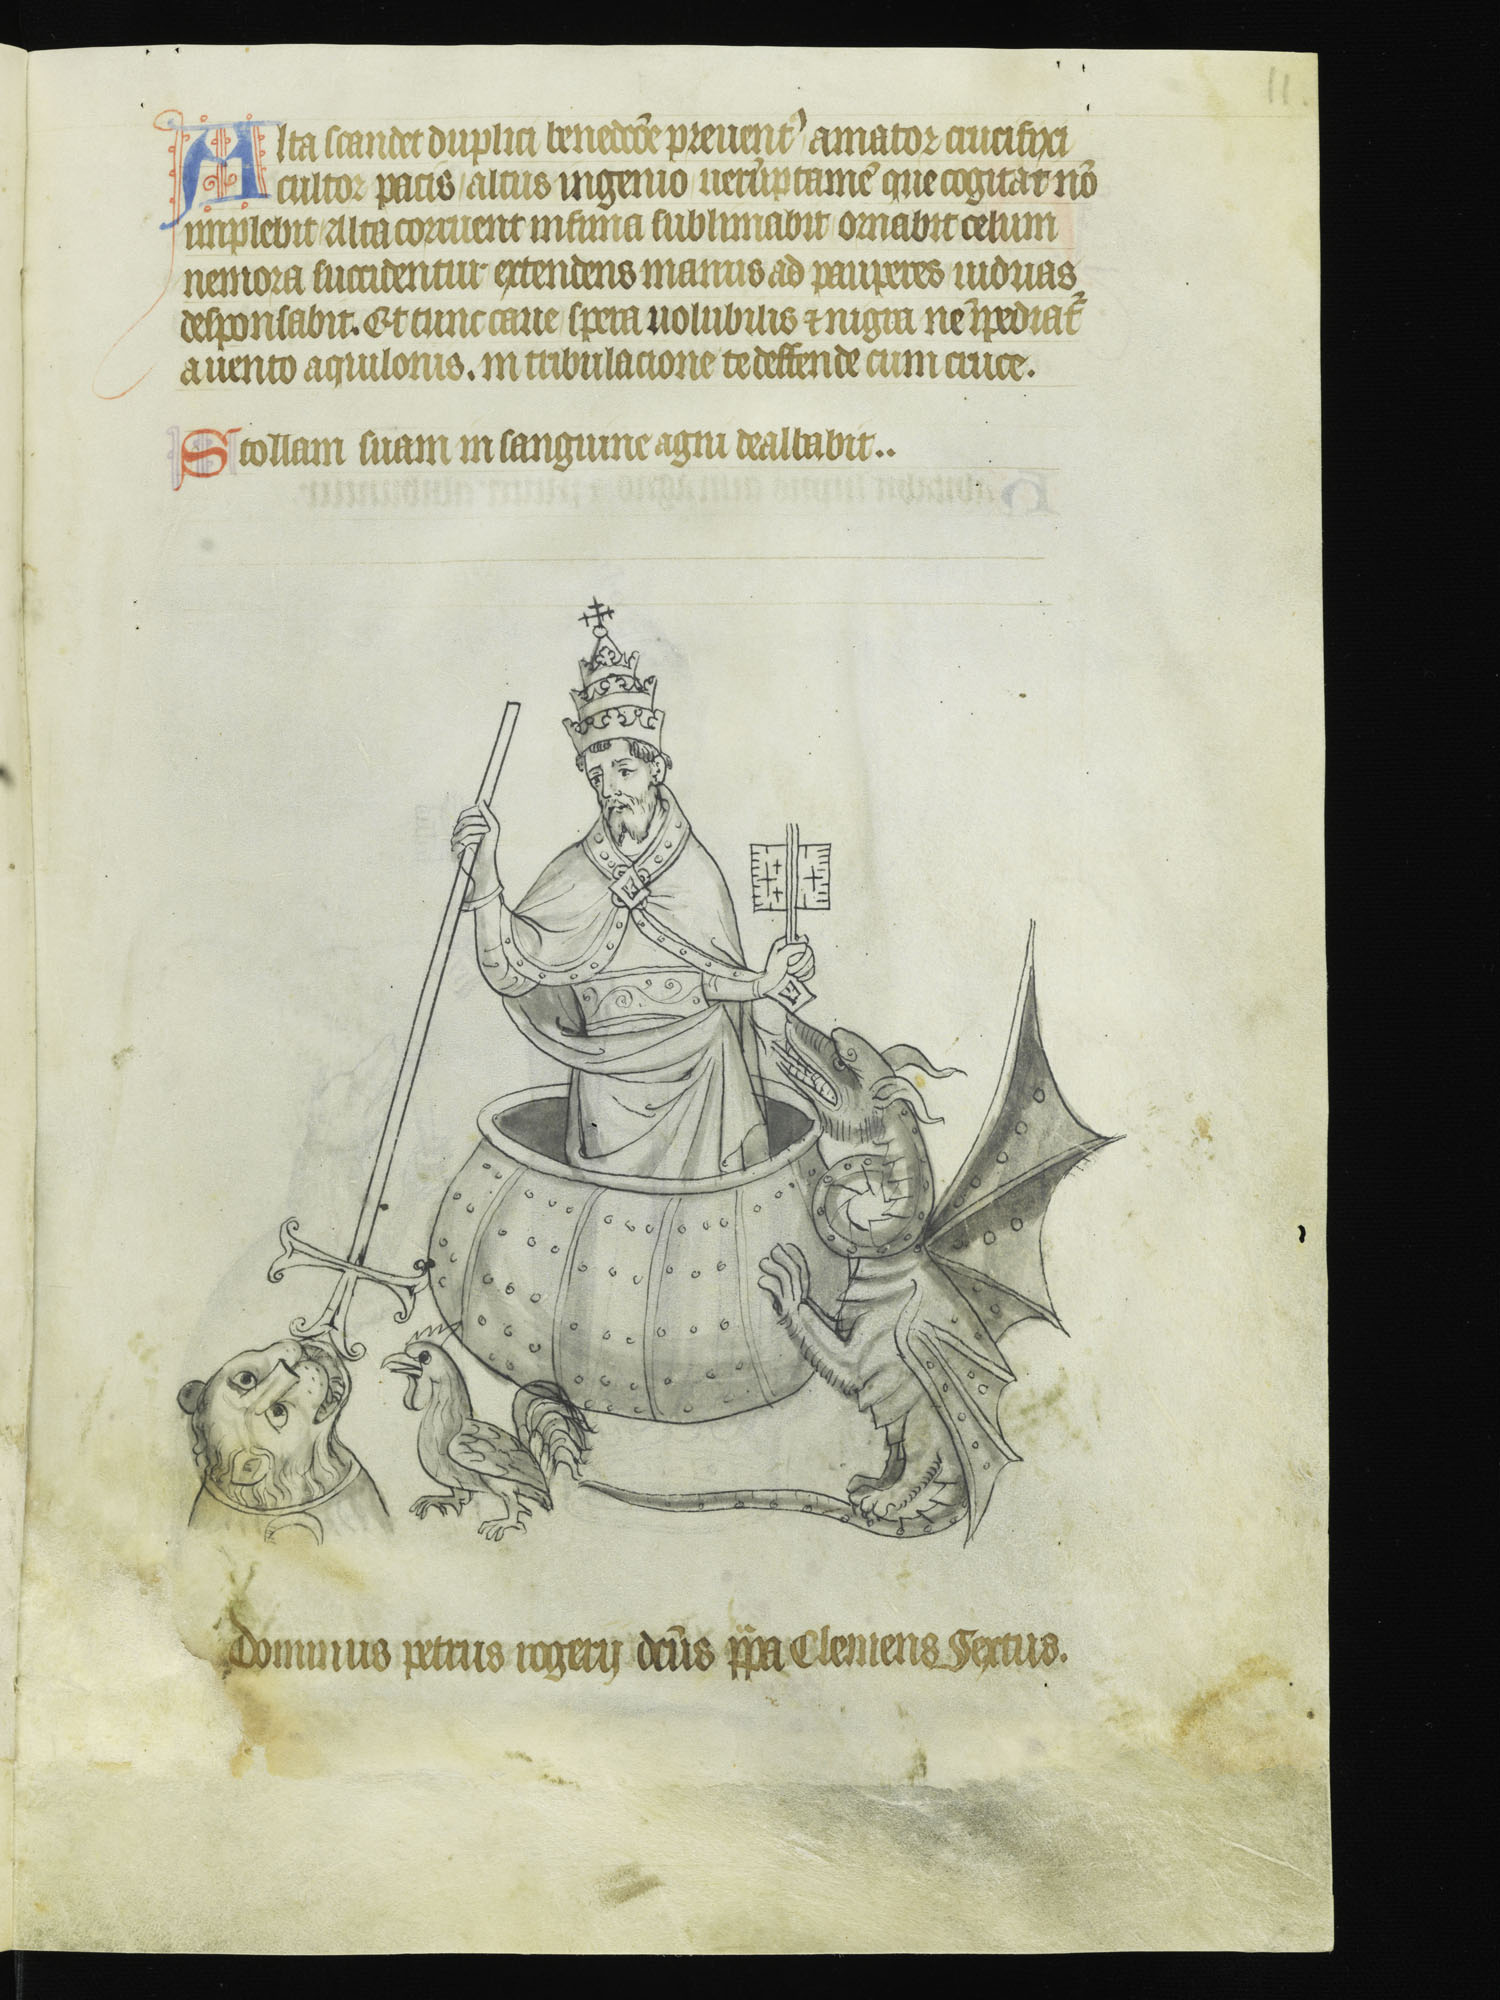 11.
Alta scandet duplici benedcõe preuent' amator crucifixi
cultor pacis / altus ingenio uerũptamẽ que cogitat nõ
implebit / Alta corruent infima sublimabit ornabit celum
nemora succidentur extendens manus ad pauperes uiduas
desponsabit. Et tunc caue spera uolubilis ⁊ nigra ne
a uento aquilonis. in tribulacione te deffende cum cruce.
Stollam suam in sanguine agni dealbabit..
dominus petrus rogerij dcũs ppa Clemens Sextus.